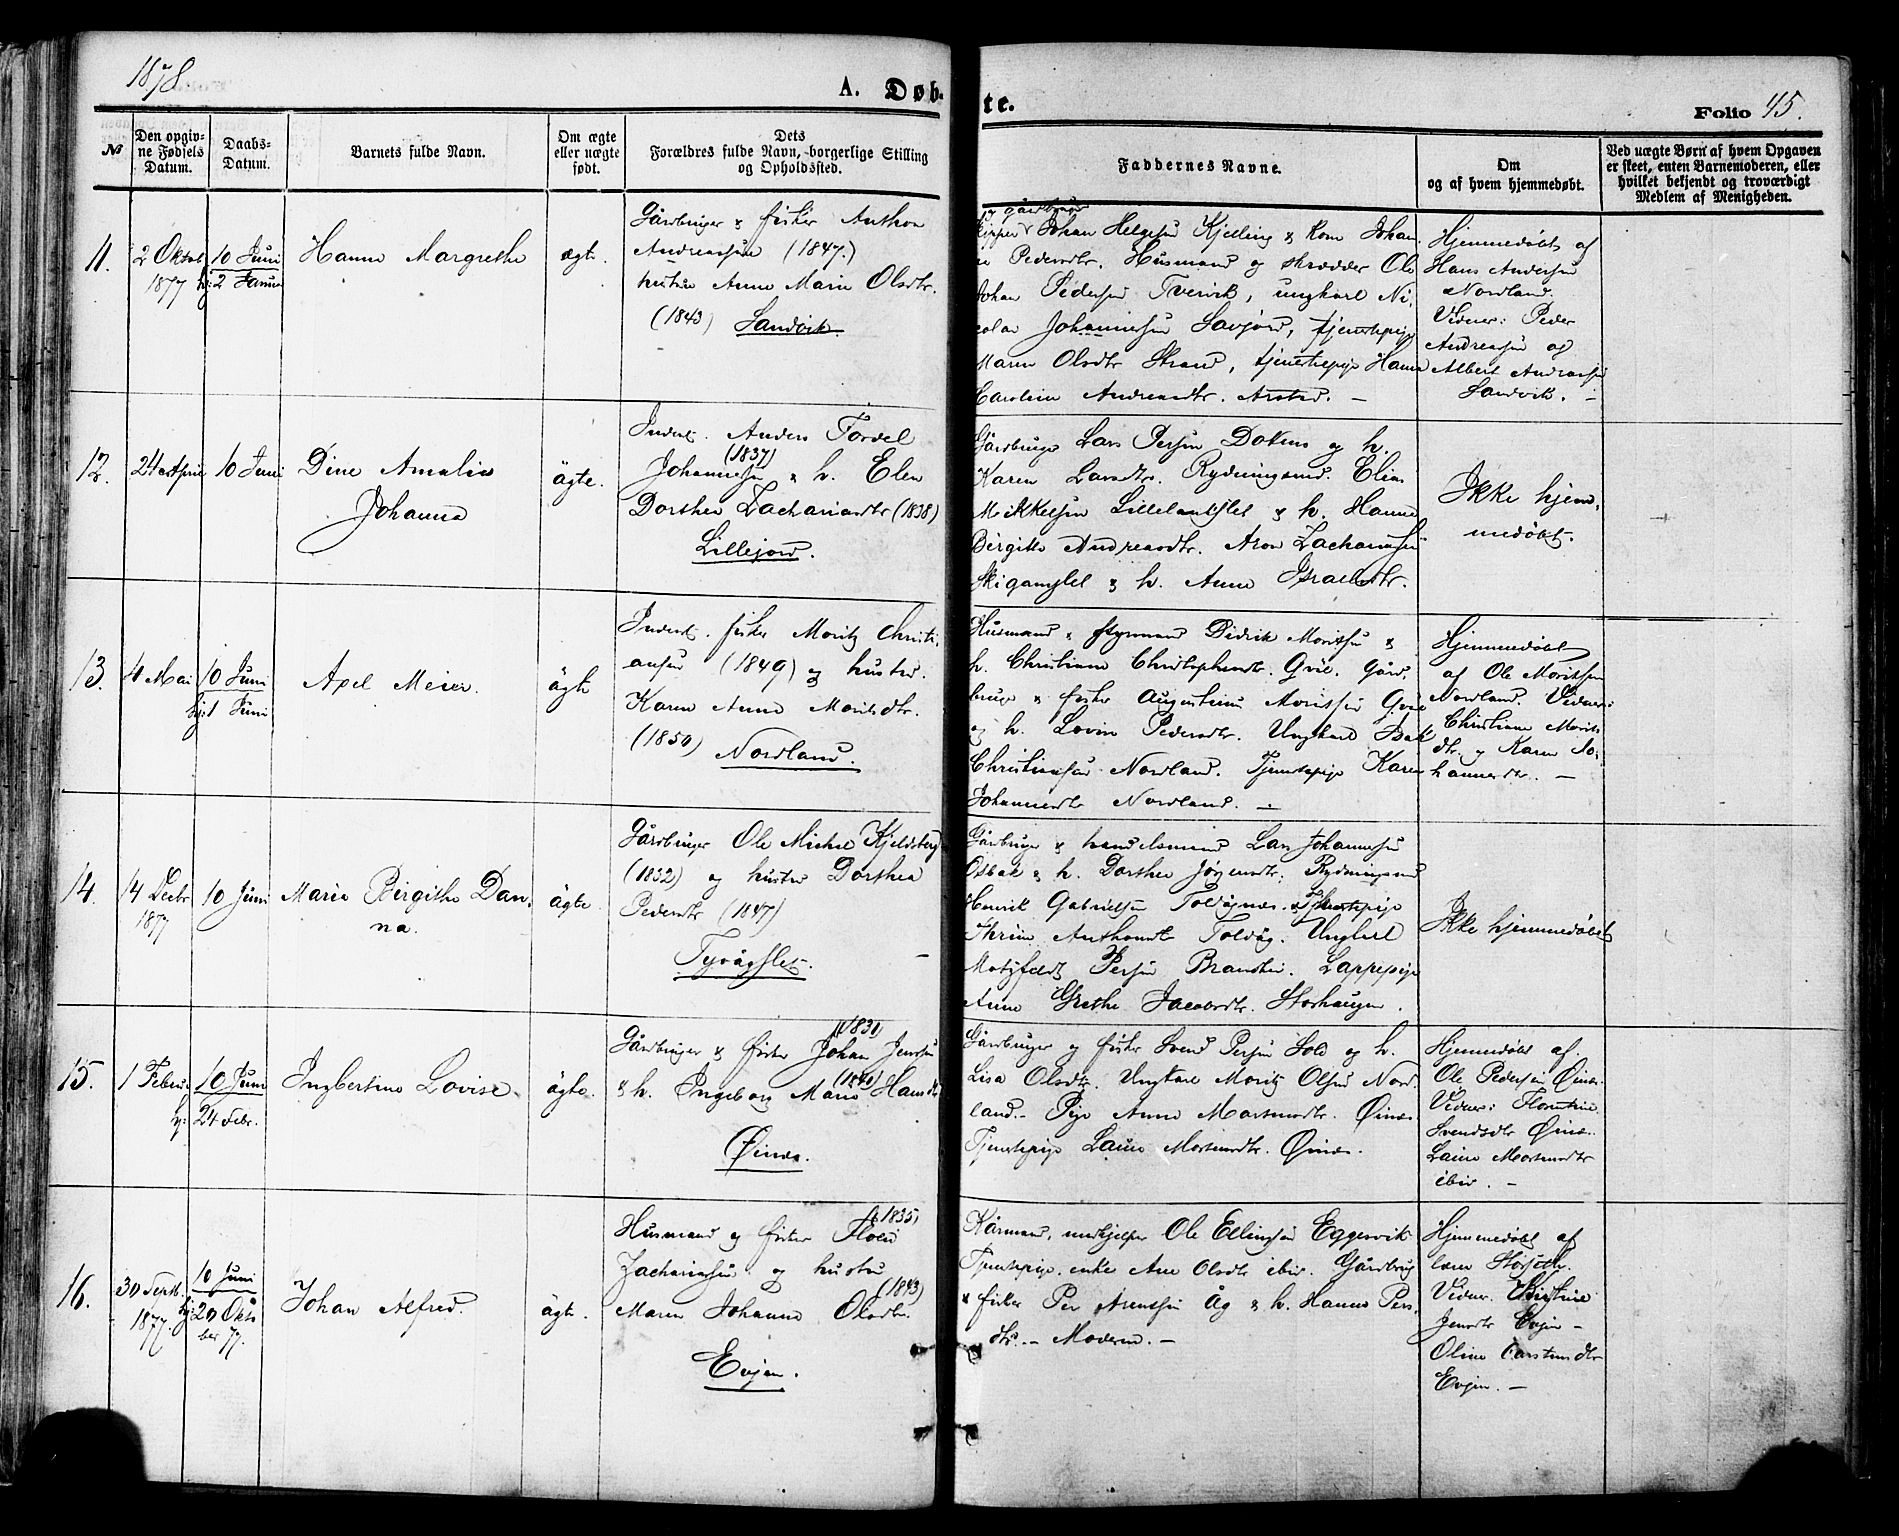 1878
A. Døb-
te.
Folio 45.
№
Den opgiv-
ne Fødsels
Datum.
Daabs-
Datum.
Barnets fulde Navn.
Om ægte
eller uægte
født.
Dets
Forældres fulde Navn, borgerlige Stilling
og Opholdssted.
Faddernes Navne.
Om
og af hvem hjemmedøbt.
Ved uægte Børn af hvem Opgaven
er skeet, enten Barnemoderen, eller
hvilket bekjendt og troværdigt
Medlem af Menigheden.
11.
2 Oktob
1877
10 Juni
hj: 2 Januar
Hanna Margrethe
ægte.
Gårdbruger & fisker Anthon
Andreassen (1847.)
hustru Anne Marie Olsdtr.
(1843) Sandvik
& gårdbruger
Skipper Johan Helgesen Kjelling & Kone Johan
ne Pedersdtr. Husmand og skrædder Ole
Johan Pedersen Tvervik, ungkarl Ni
colai Johannesen Savjord, tjenstepige
Maren Olsdtr Strand, tjenstepige Hanna
Caroline Andreasdtr. Arstad. —
Hjemmedøbt af
Hans Andersen
Nordland.
Vidner: Peder
Andreassen og
Albert Andreassen
Sandvik. —
12.
24 April
10 Juni
Dine Amalia
Johanna
ägte.
Inderst. Anders Tordel
(1837)
Johannesen & h. Elen
Dorthea Zachariasdtr (1838)
Lillejord.
Gårdbruger Lars Persen Dokmo og h.
Karen Larsdtr. Rydningsmd. Elias
Mikkelsen & h. Hanna
Birgitte Andreasdtr. Aron Zachariassen
& h. Anne Israelsdtr.
Ikke hjem,
medøbt.
13.
4 Mai
10 Juni
hj: 1 Juni
Axel Meier.
ägte
Inderst. fisker Moritz Christi,
ansen (1849) og hustru.
Karen Anna Moritsdtr.
(1850) Nordland.
Husmand & styrmand Didrik Moritsen &
h. Christiane Christophersdtr. Gvik. Gård,
bruger & fisker Augustinus Moritsen Gvik
og h. Lovise Pedersdtr. Ungkarl Isak
Christiansen Nordland. Tjenstepige Karen
Johannesdtr Nordland. —
Hjemmedøbt
af Ole Moritsen
Nordland. Vidner:
Christiane Morits
dtr. og Karen Jo,
hannesdtr. —
14.
14 Decbr
1877
10 Juni
Maria Birgitha Dan,
na.
ägte.
Gårdbruger Ole Michel Kjeldsberg
(1832) og hustru Dorthea
Pedersdtr (1847)
Tyvågslet.
Gårdbruger & handelsmand Lars Johannesen
Osbak & h. Dorthea Jørgensdtr, Rydningsmd
Henrik Gabrielsen Toldågnes. & Tjenstepige
Anthonsdtr Toldåg. Ungkarl
Motzfeldt Persen. Lappepige
Anne Grethe Jacobsdtr. Storhaugen.
Ikke hjemmedøbt
15.
1 Februar
10 Juni
hj: 24 Febr.
Ingbertine Lovise.
ägte.
(1831)
Gårdbruger & fisker Johan Jenssen
(1840)
& h. Ingeborg Maria Hansdtr
Øinæs.
Gårdbruger og fisker Svend Persen Sold og h.
Lisa Olsdtr. Ungkarl Moritz Olsen Nord,
land. — Pige Anne Mortensdtr. Øinæs.
Tjenstepige Laura Mortensdtr. Øinæs.
Hjemmedøbt af
Ole Pedersen Øinæs.
Vidner: Florentine
Svendsdtr Øinæs.
Laura Mortensdtr
ibid. —
16.
30 Septb.
1877.
10 Juni
hj: 20 Okto
ber 77.
Johan Alfred.
ägte.
(1835)
Husmand og fisker
Zachariassen og hustru
(1843)
Maren Johanna Olsdtr.
Evjen.
Kårmand, medhjelper Ole Ellingsen Eggesvik.
Tjenstepige, enke Ane Olsdtr ibid. Gårdbrug
& fisker Per Arentsen Åg & h. Hanna Pers,
dtr. — Moderen. —
Hjemmedøbt af
lærer Storjord.
Vidner. Kirstine
Jensdtr Evjen —
Oline Carstensdtr
Evjen. —